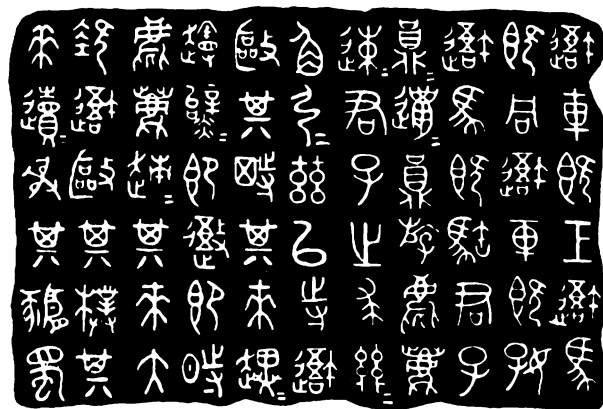 吾車既工吾馬
既同吾車既好
吾馬既駓君子
員=邋=員斿麀鹿
速=君子之求
角弓=茲以寺吾
敺其特其來趩=
即吾即時
麀鹿趚=其來大
次吾敺其樸其
來䢱=射其豜蜀